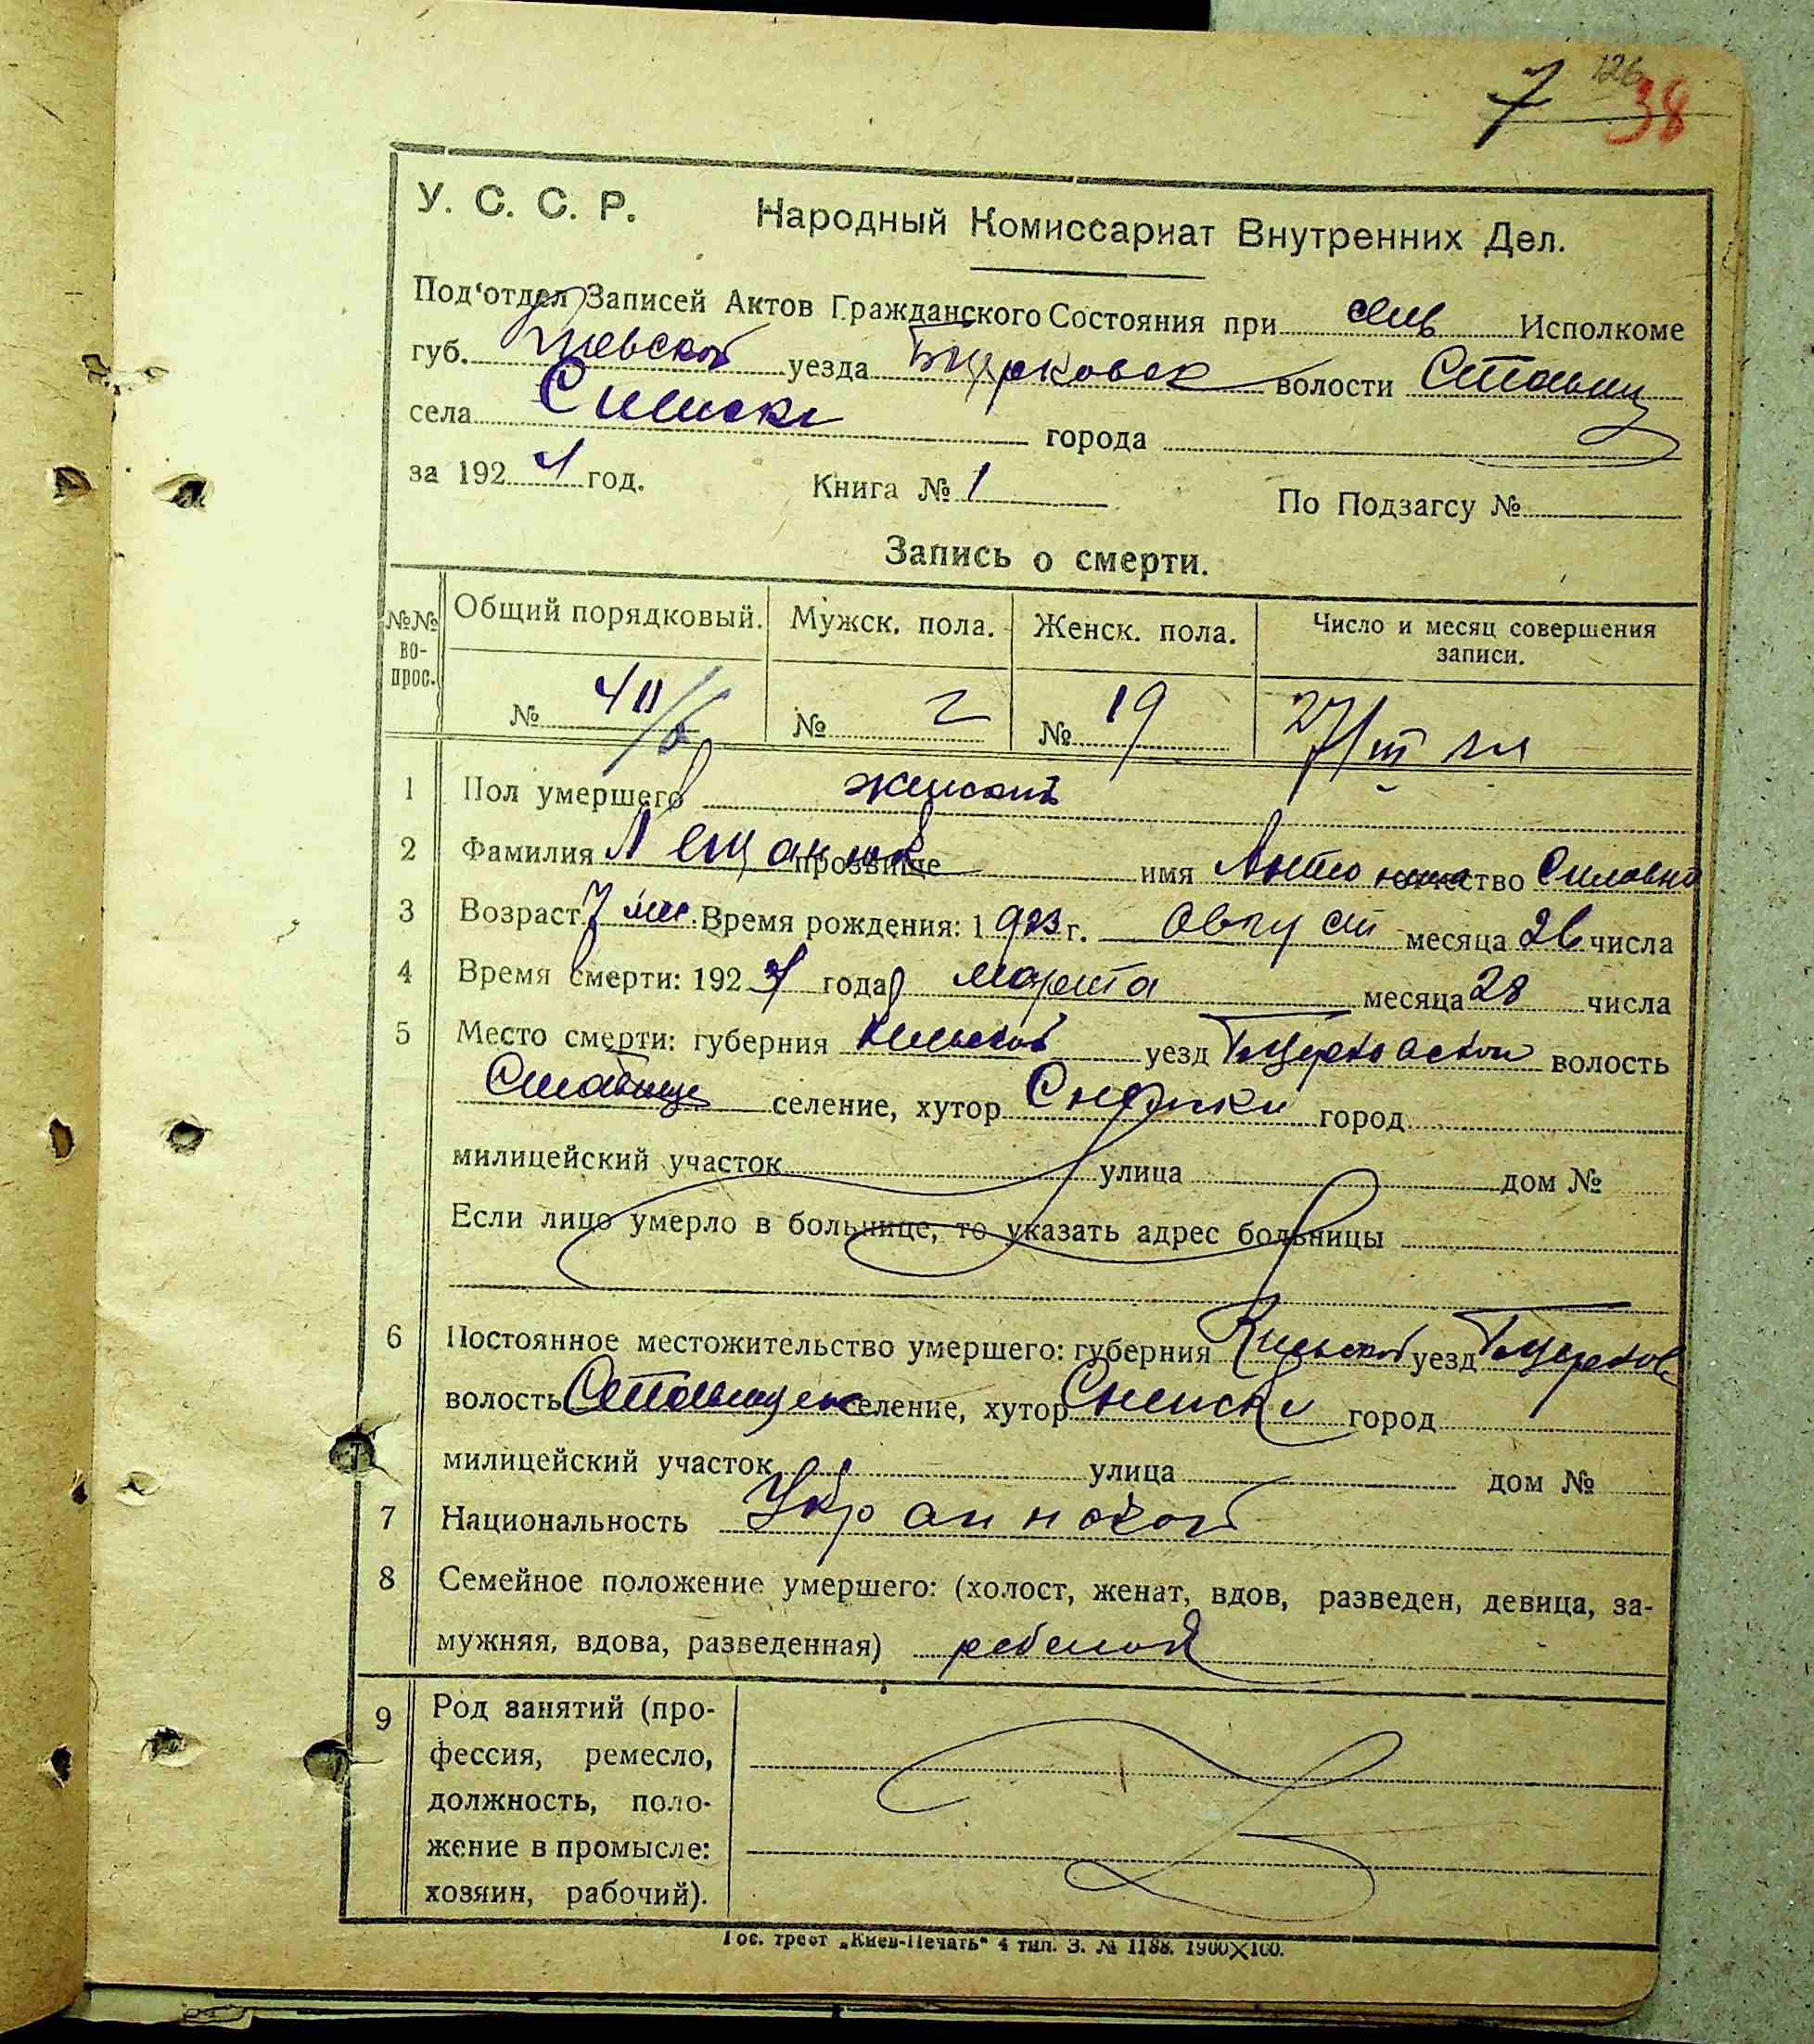 7 126 38
У. С. С. Р. Народный Комиссариат Внутренних Дел.
Под'отдел Записей Актов Гражданского Состояния при Исполкоме
губ. Киевской уезда Бцерковск волости Ставищ
села города
за 192 4 год. Книга № 1 По Подзагсу №
Запись о смерти.
№№ вопрос. Общий порядковый. Мужск. пола. Женск. пола. Число и месяц совершения
записи.
№ № 2 № 19 27/III
1 Пол умершего женский
2 Фамилия прозвище имя отчество Силовна
3 Возраст 7 мес. Время рождения: 1 923 г. август месяца 26 числа
4 Время смерти: 192 4 года марта месяца 28 числа
5 Место смерти: губерния Киевской уезд Бцерковской волость
Ставище селение, хутор город
милицейский участок улица дом №
Если лицо умерло в больнице, то указать адрес больницы
6 Постоянное местожительство умершего: губерния Киевской уезд Бцерков
волость селение, хутор город
милицейский участок улица дом №
7 Национальность Украинской
8 Семейное положение умершего: (холост, женат, вдов, разведен, девица, за-
мужняя, вдова, разведенная) ребенок
9 Род занятий (про-
фессия, ремесло,
должность, поло-
жение в промысле:
хозяин, рабочий).
Гос. трест „Киев-Печать" 4 тип. З. № 1188. 1900×100.